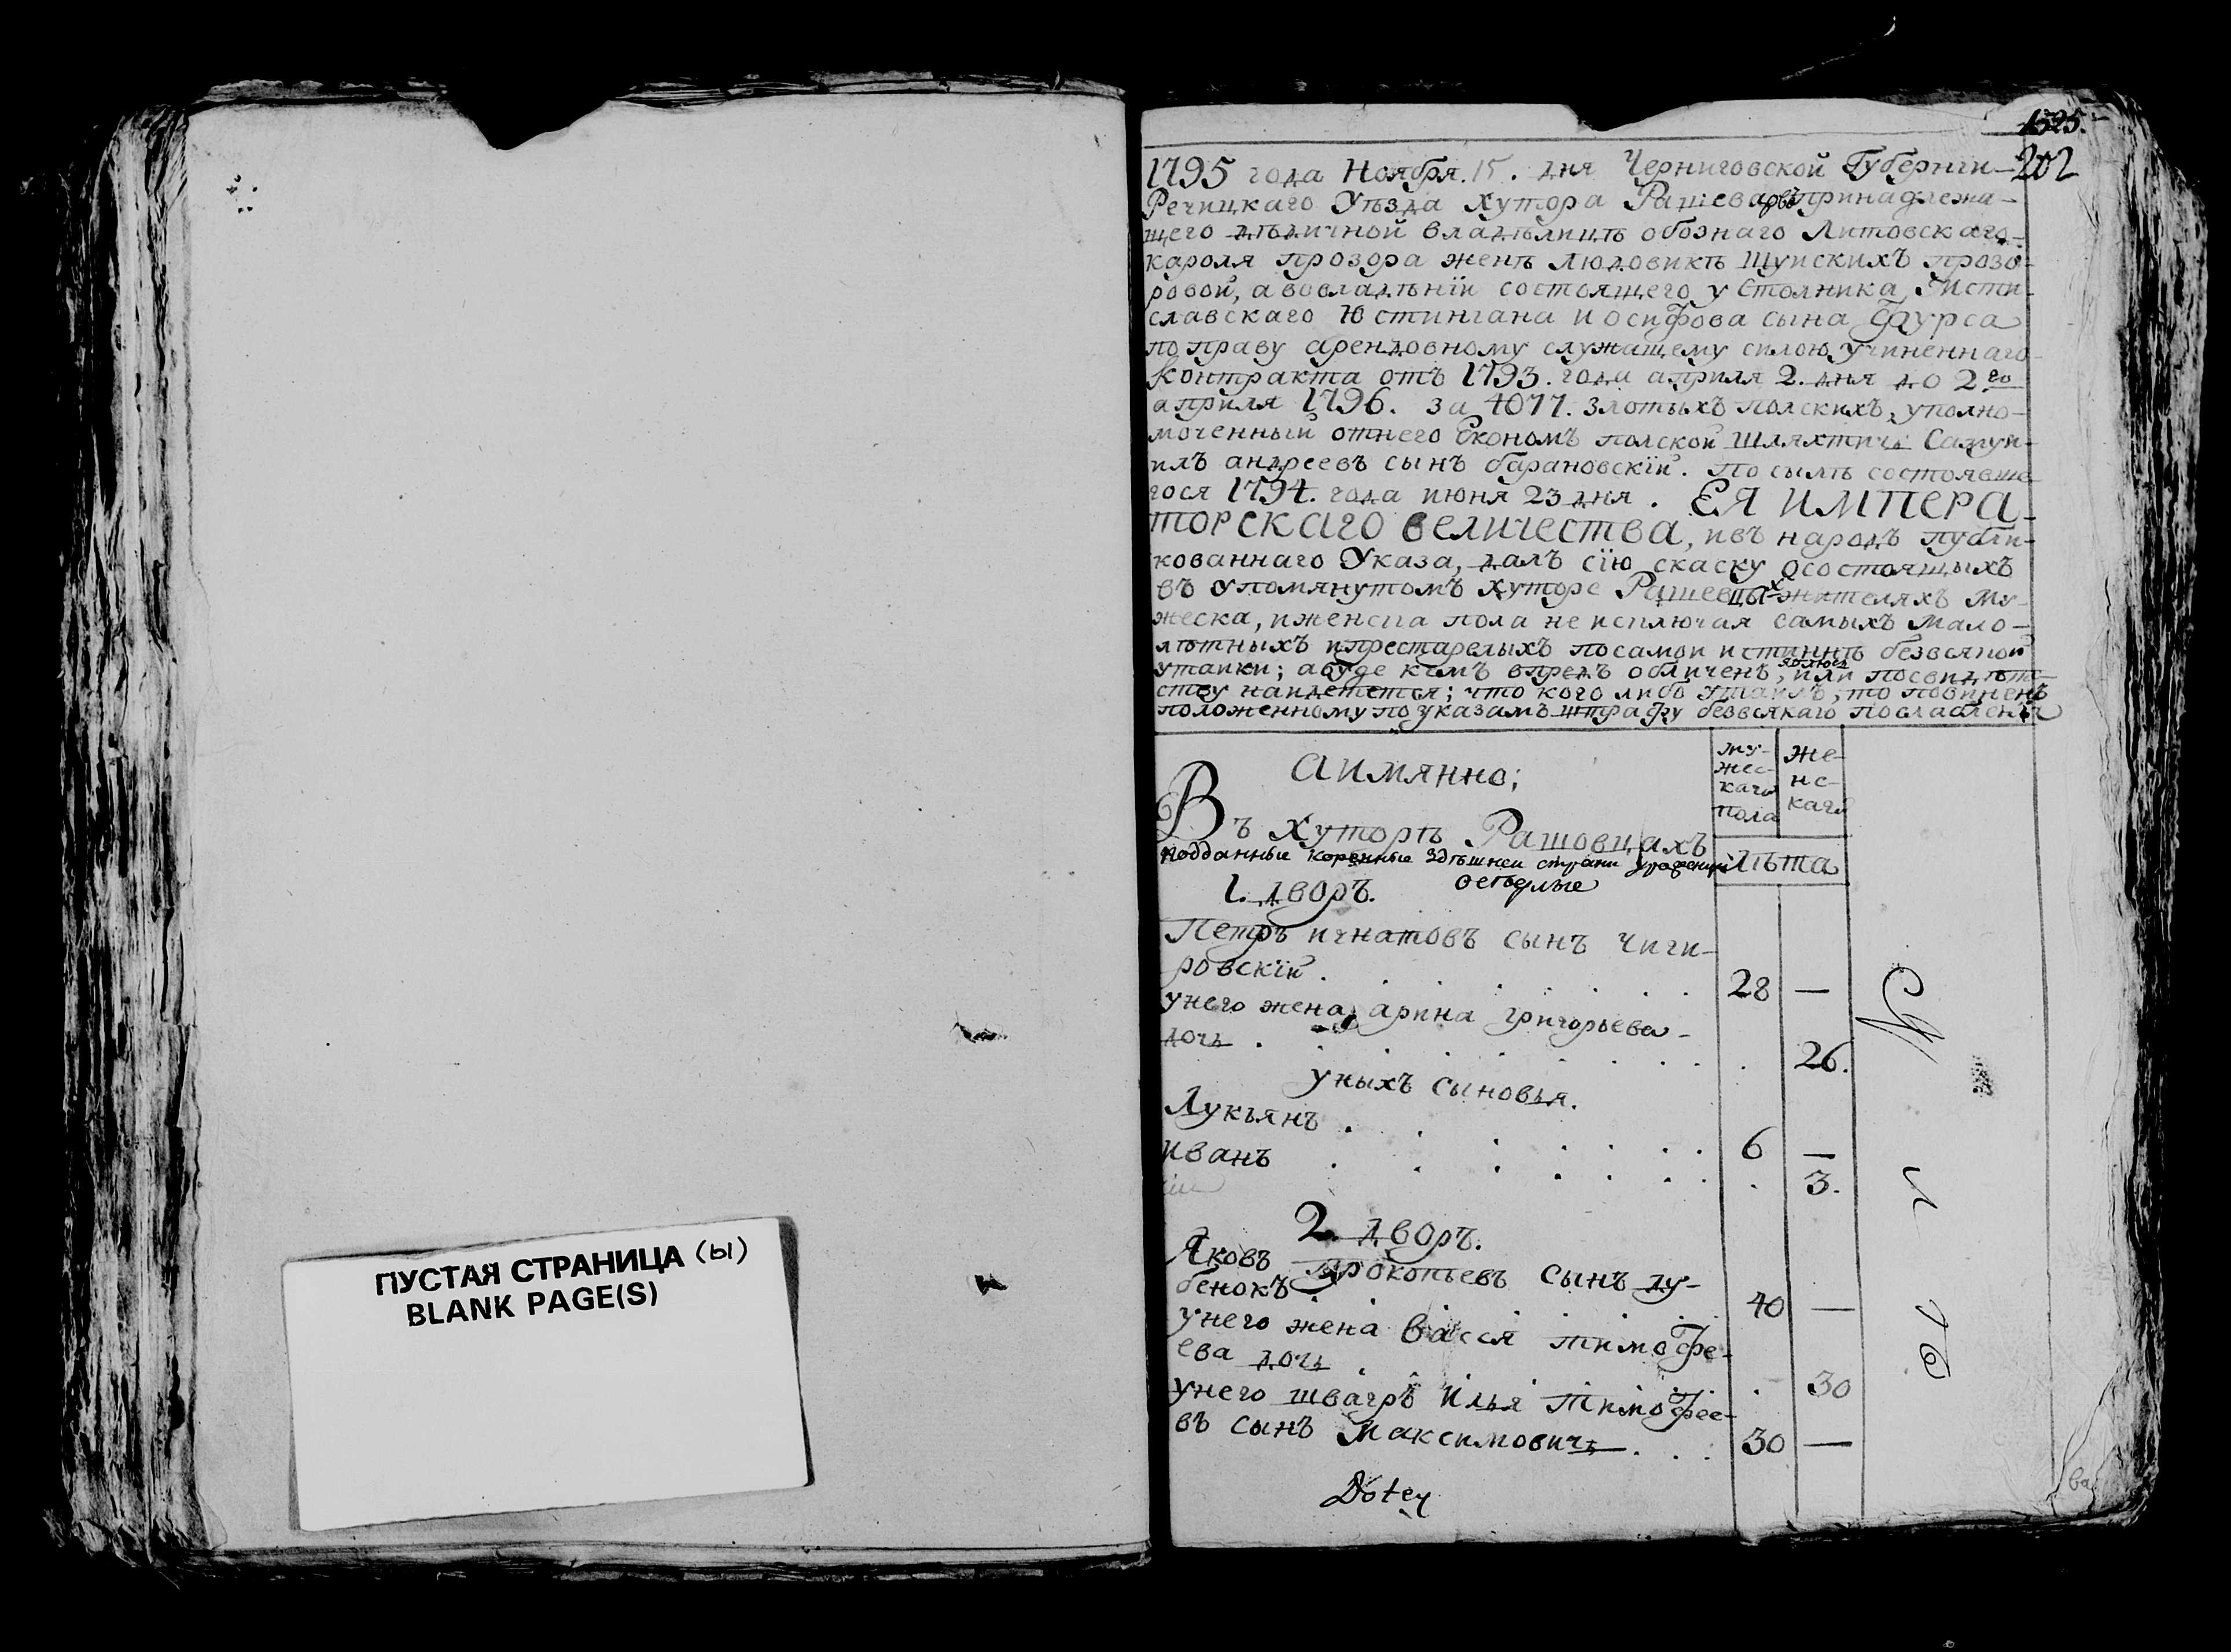 ПУСТАЯ СТРАНИЦА (Ы)
BLANK PAGE(S)
1525.
202
1795 года Ноября. 15. дня Черниговской Губерніи
Речицкаго Уѣзда Хутора принадлежа-
щего дѣдичной владѣлицѣ обознаго Литовскаго
кароля прозора женѣ Людовикѣ Шуискихъ прозо-
ровой, а вовладѣніи состоящего у Столника Мсти-
славскаго Юстингана Иосифова сына Бурса
по праву арендовному служащему силою учиненнаго
контракта отъ 1793. года априля 2. дня до 2го
априля 1796. за 4077. злотыхъ полскихъ, уполно-
моченный отнего Економъ полской шляхтичь Самуи-
илъ андреевъ сынъ барановскій. По сылѣ состоявше
гося 1794. года июня 23 дня. ЕЯ ИМПЕРА-
ТОРСКАГО ВЕЛИЧЕСТВА, ивъ народъ публи-
кованнаго Указа, далъ сїю скаску осостоящыхъ
въ Упомянутомъ Хуторе Рашевцыхъ жителяхъ му-
жеска, иженска пола не исплючая самыхъ мало-
лѣтныхъ ипрестарелыхъ посамой истиннѣ безвсякой
утаики; абуде кемъ впредь обличенъ, или посвидѣте-
ству найдетется; что кого либо утаилъ, то повиненъ
положенному по указамъ штрафу безвсякаго послабленія
аимянно;
му-
жес-
каго
пола
же-
нс-
каго
Въ Хуторѣ Рашовцахъ
подданные коренные здѣшней страни урожении
лѣта
оседлые
1. дворъ.
Петръ игнатовъ сынъ чиги-
ровскій . . . . . . 28 —
унего жена арина григорьева
дочь . . . . . . . 26.
уныхъ сыновья.
Лукьянъ . . . . . . 6 —
иванъ . . . . . . . 3.
2. дворъ.
Яковъ Прокопьевъ сынъ ду-
бенокъ . . . . . . 40 —
унего жена Васся тимофе-
ева дочь . . . . . 30
унего швагръ Илья Тимофее-
въ сынъ Максимовичь . . . 30 —